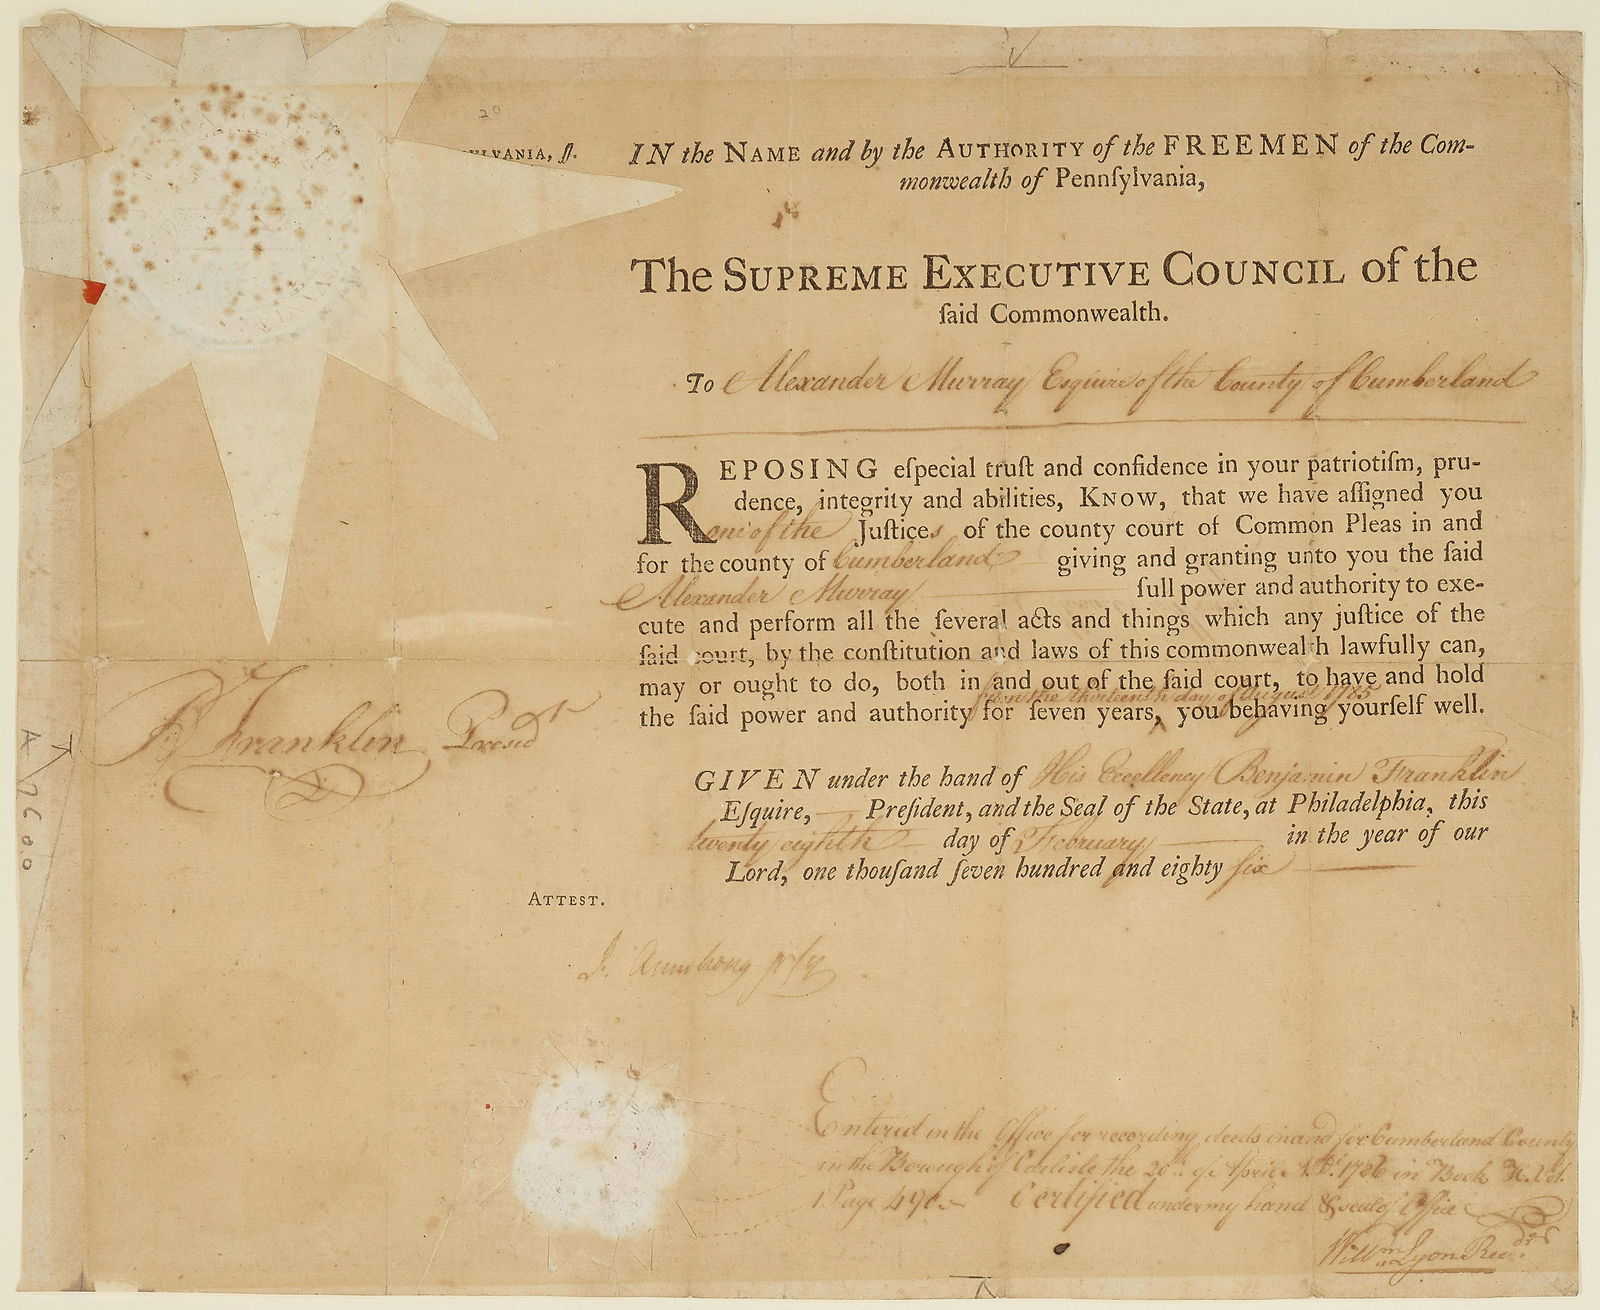 20
YLVANIA, ſſ.
IN the NAME and by the AUTHORITY of the FREEMEN of the Com-
monwealth of Pennſylvania,
The SUPREME EXECUTIVE COUNCIL of the
ſaid Commonwealth.
To Alexander Murray Esquire of the County of Cumberland
REPOSING eſpecial truſt and confidence in your patriotiſm, pru-
dence, integrity and abilities, KNOW, that we have aſſigned you
one of the Juſtices of the county court of Common Pleas in and
for the county of Cumberland giving and granting unto you the ſaid
Alexander Murray full power and authority to exe-
cute and perform all the ſeveral acts and things which any juſtice of the
ſaid court, by the conſtitution and laws of this commonwealth lawfully can,
may or ought to do, both in and out of the ſaid court, to have and hold
from the thirteenth day of August 1785
the ſaid power and authority for ſeven years, you behaving yourſelf well.
B Franklin Presidt
GIVEN under the hand of His Excellency Benjamin Franklin
Eſquire, Preſident, and the Seal of the State, at Philadelphia, this
twenty eighth day of February in the year of our
Lord, one thouſand ſeven hundred and eighty six
ATTEST.
J. Armstrong
Entered in the Office for recording deeds in and for Cumberland County
in the Borough of Carlisle the of April 1786 in Book
1 Page 490 Certified under my hand & seal of Office
Willm Lyon Recdr
A 7600